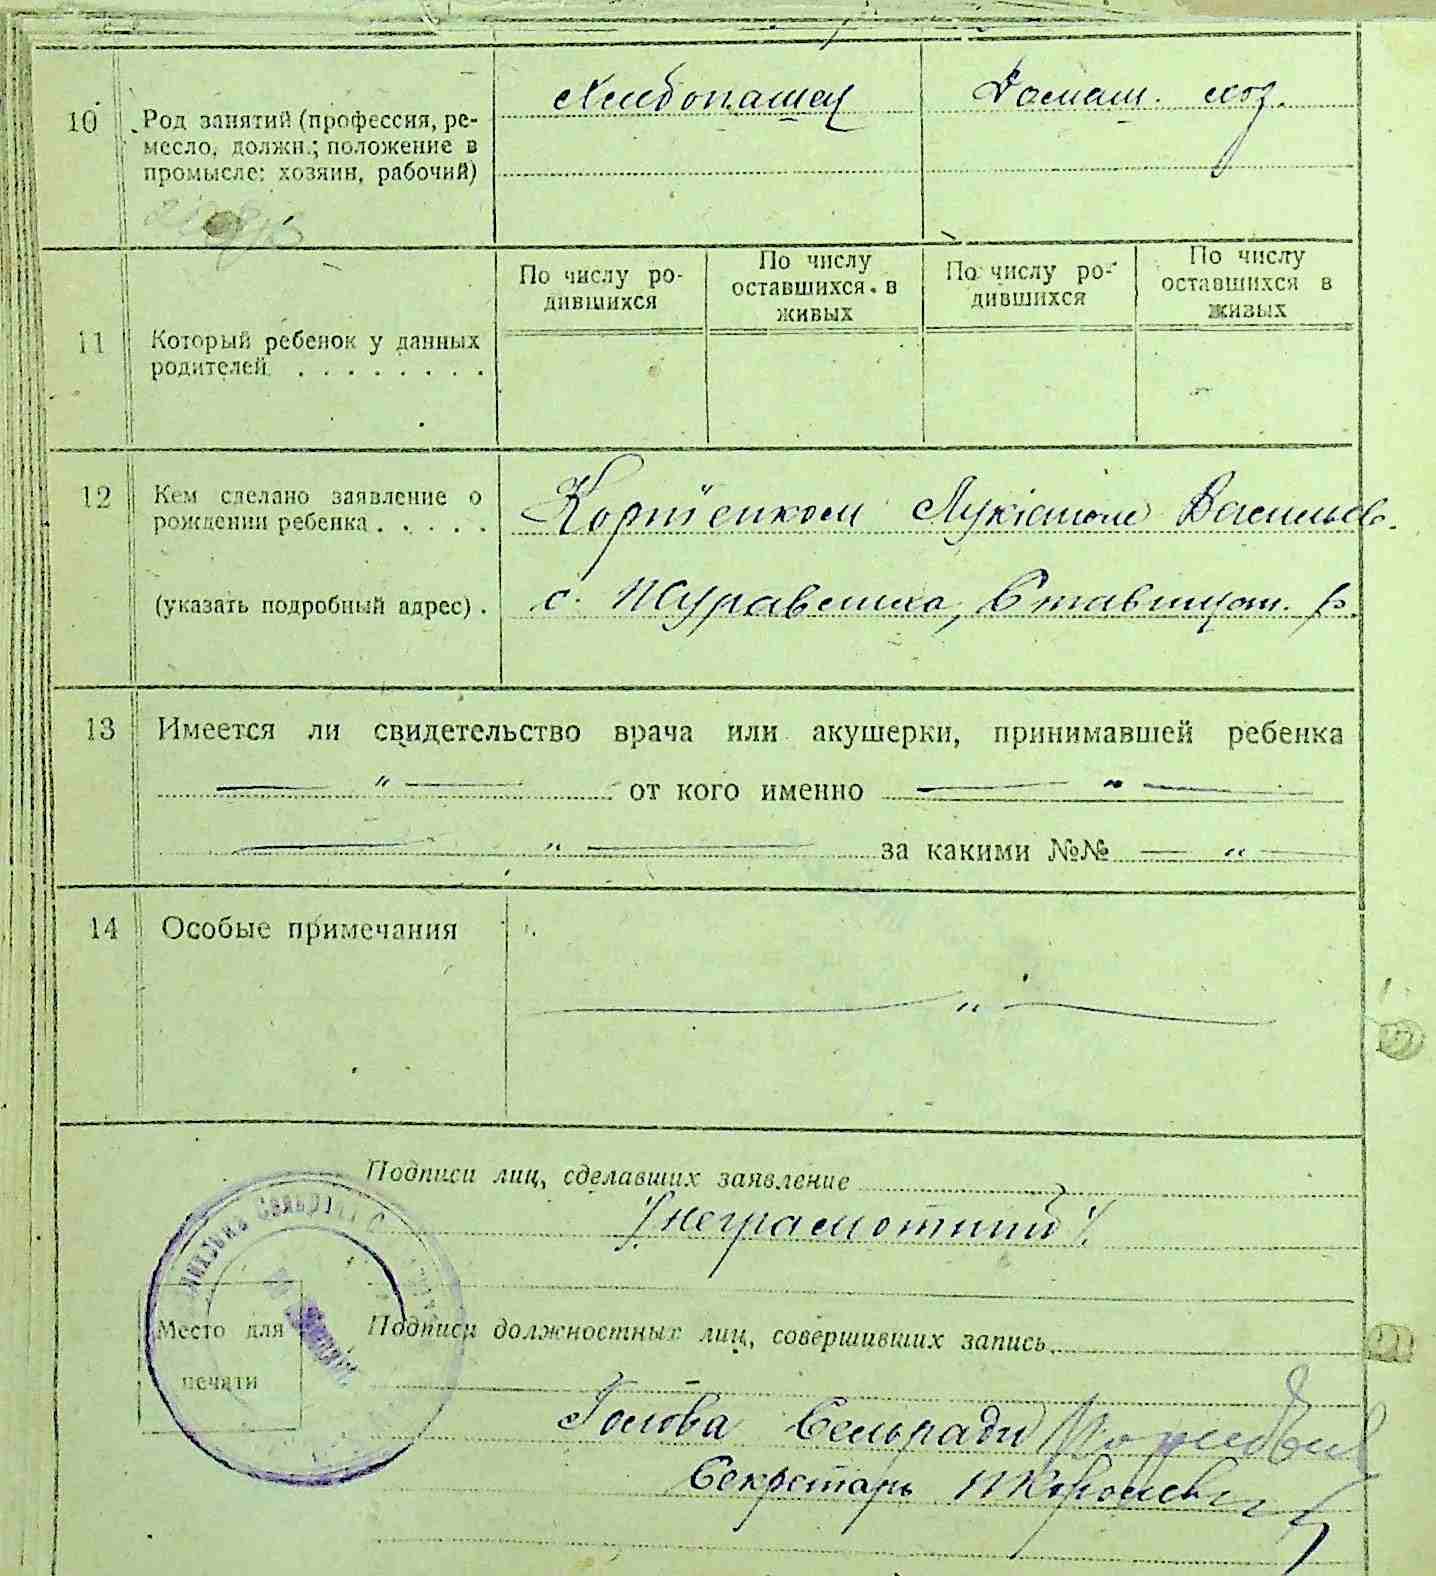 10 Род занятий (профессия, ре-
месло, должн.; положение в
промысле: хозяин, рабочий)
Хлибопашец
Домаш. хоз.
11 Который ребенок у данных
родителей . . . . . . . .
По числу ро-
дившихся
По числу
оставшихся в
живых
По числу ро-
дившихся
По числу
оставшихся в
живых
12 Кем сделано заявление о
рождении ребенка . . . . .
(указать подробный адрес) .
Лукіяном Васильев.
с. Журавлиха, Ставищан. р.
13 Имеется ли свидетельство врача или акушерки, принимавшей ребенка
— „ — от кого именно — „ —
— „ — за какими №№ — „ —
14 Особые примечания
— „ —
Подписи лиц, сделавших заявление
/неграмотний/
Место для
печати
Подписи должностных лиц, совершивших запись
Голова Сельради
Секретарь